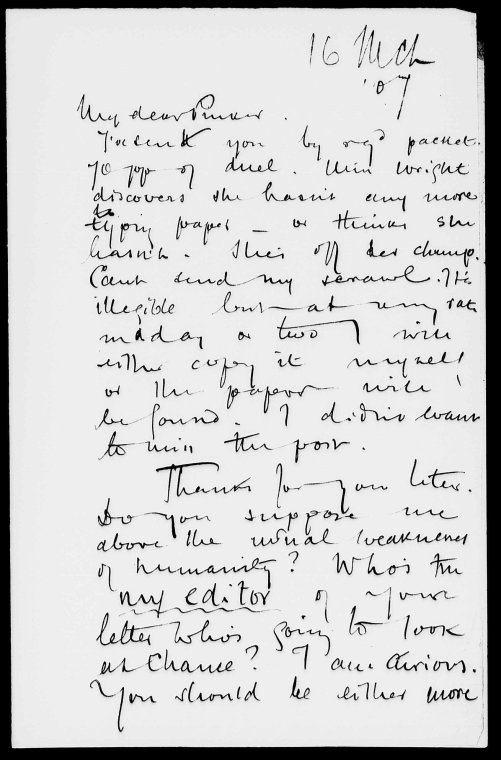 16 Mch
'07
My dear Pinker.
I've sent you by regd packet
70 pp of duel. Miss Wright
discovers she hasn't any more
typing paper — or thinks she
hasn't. She's off her chump.
Can't send my scrawl. It's
illegible but at any rate
in a day or two I will
either copy it myself
or the paper will
be found. I didn't want
to miss the post.
Thanks for your letter.
Do you suppose me
above the usual weaknesses
of humanity? Who's the
my editor of your
letter who's going to look
at Chance? I am curious.
You should be either more